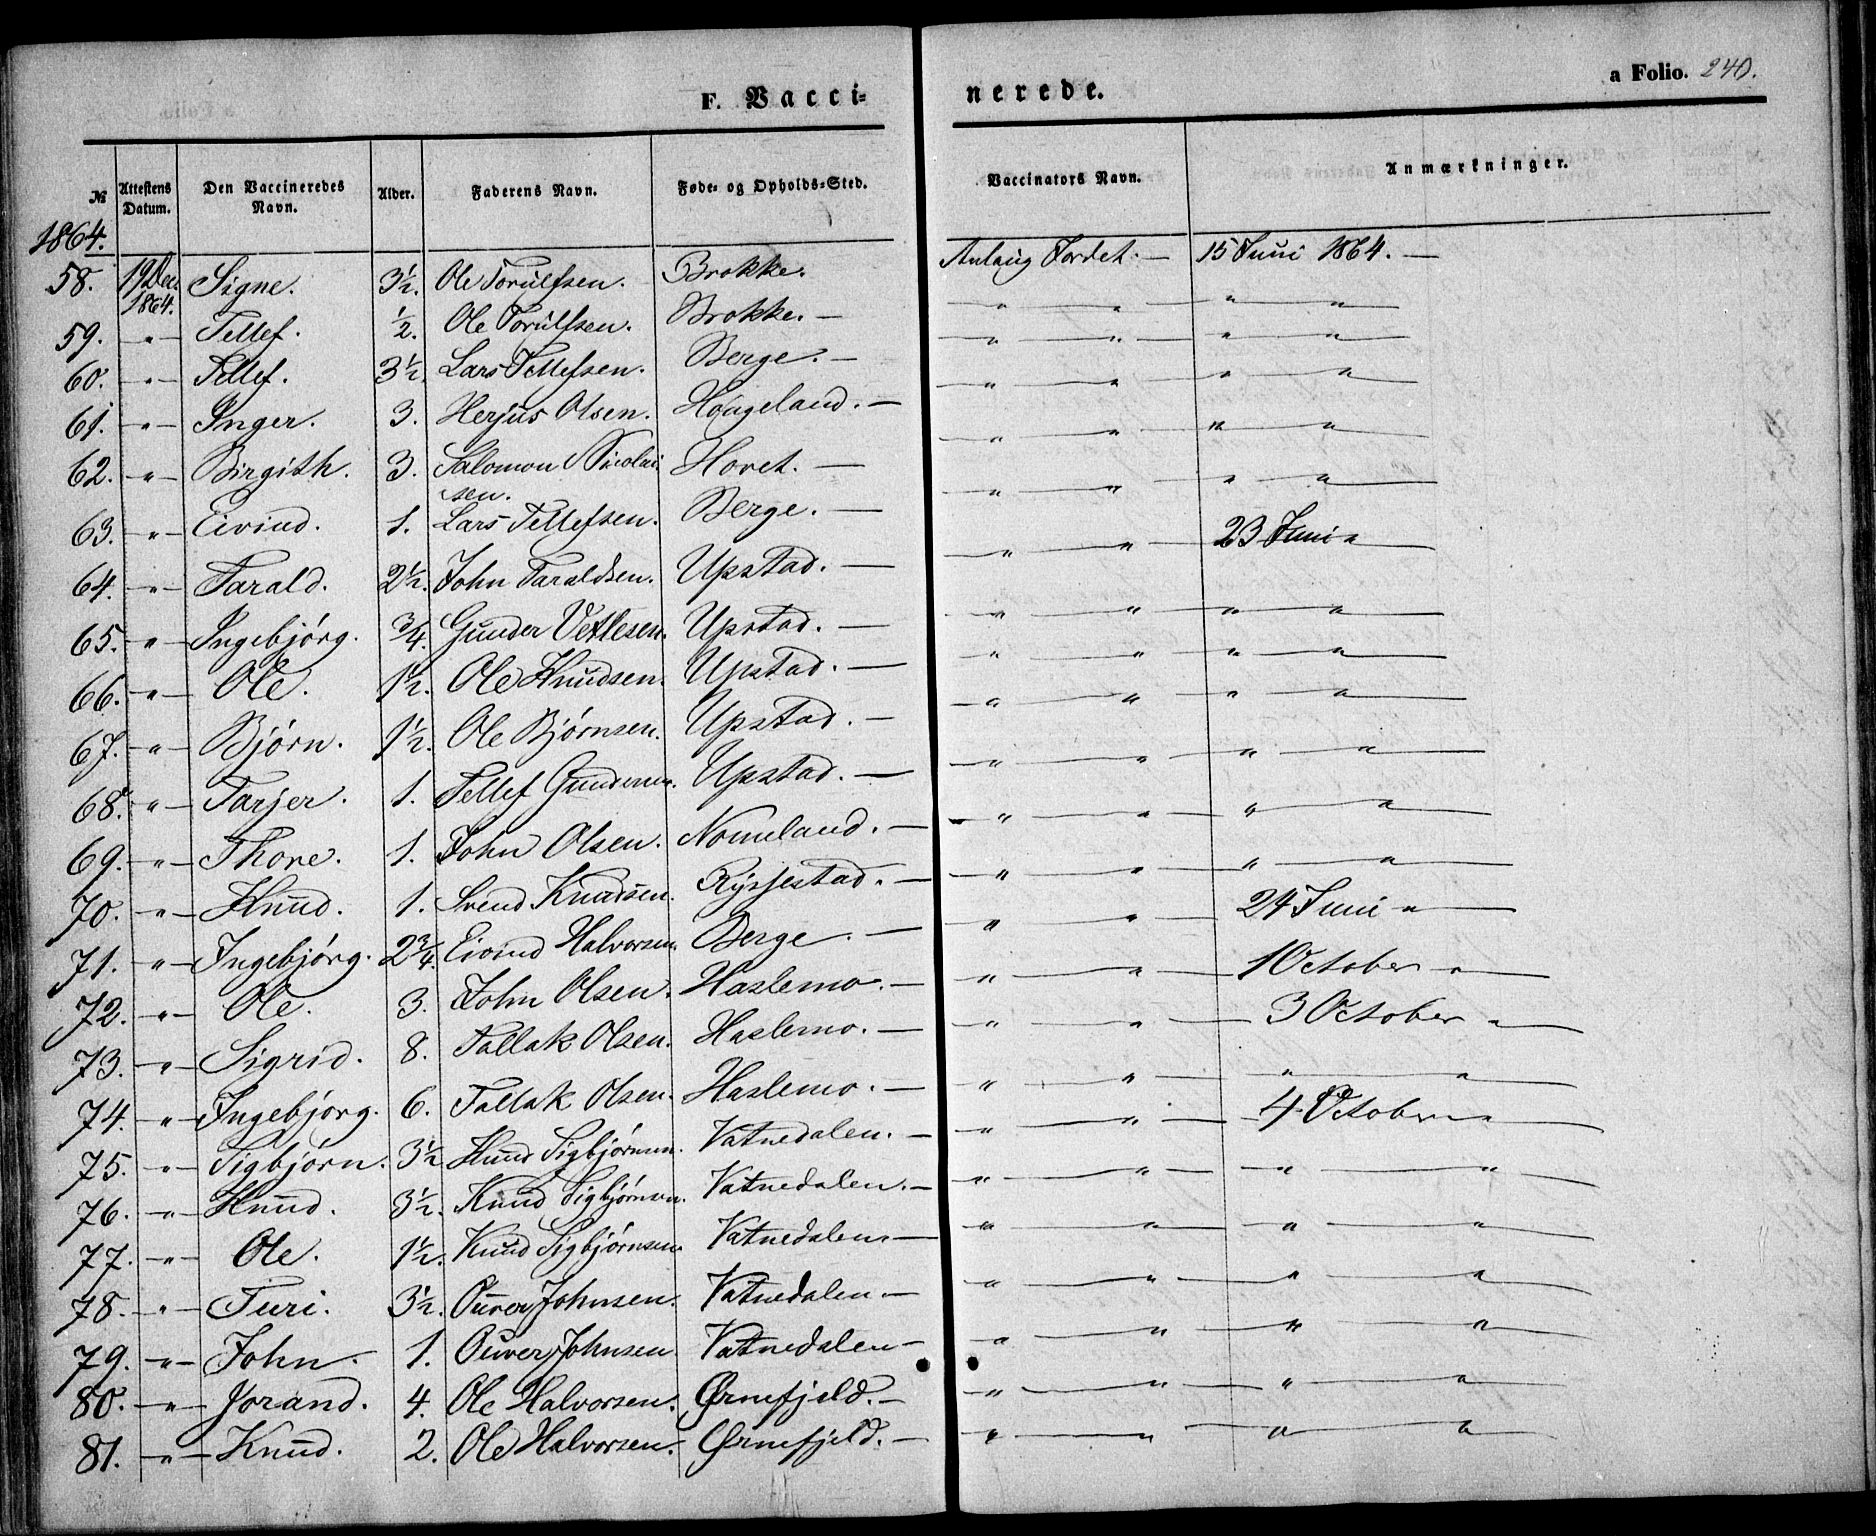 F. Vacci-
nerede.
a Folio. 240.
№ Attestens Datum. Den Vaccineredes Navn. Alder. Faderens Navn. Føde- og Opholds-Sted. Vaccinators Navn. Anmærkninger.
1864.
58. 19 Dec. 1864. Signe. 3½. Ole Torulfsen. Brokke. Aulaug Jordet. — 15 Juni 1864. —
59. -"- Tellef. ½. Ole Torulfsen. Brokke. — " " " "
60. -"- Tellef. 3½. Lars Tellefsen. Berge. — " " " "
61. -"- Inger. 3. Herjus Olsen. Hougeland. — " " " "
62. -"- Birgith. 3. Salomon Nicolaisen. Hovet. — " " " "
63. -"- Eivind. 1. Lars Tellefsen. Berge. — " " " "
64. -"- Tarald. 2½. John Taraldsen. Upstad. — " " 23 Juni "
65. -"- Ingebjørg. ¾. Gunder Vetlesen. Upstad. — " " " "
66. -"- Ole. 1½. Ole Knudsen. Upstad. — " " " "
67. -"- Bjørn. 1½. Ole Bjørnsen. Upstad. — " " " "
68. -"- Tarjer. 1. Tellef Gundersen. Upstad. — " " " "
69. -"- Thore. 1. John Olsen. Nomeland. — " " " "
70. -"- Knud. 1. Svend Knudsen. Rysjestad. — " " " "
71. -"- Ingebjørg. 2¾. Eivind Halvorsen. Berge. — " " 24 Juni "
72. -"- Ole. 3. John Olsen. Haslemo. — " " 1 October "
73. -"- Sigrid. 8. Tallak Olsen. Haslemo. — " " 3 October "
74. -"- Ingebjørg. 6. Tallak Olsen. Haslemo. — " " " "
75. -"- Sigbjørn. 3½ Knud Sigbjørnsen. Vatnedalen. — " " 4 October "
76. -"- Knud. 3½. Knud Sigbjørnsen. Vatnedalen. — " " " "
77. -"- Ole. 1½. Knud Sigbjørnsen. Vatnedalen — " " " "
78. -"- Turi. 3½. Ouver Johnsen. Vatnedalen — " " " "
79. -"- John. 1. Ouver Johnsen. Vatnedalen — " " " "
80. -"- Jorand. 4. Ole Halvorsen. Ørnefjeld. — " " " "
81. -"- Knud. 2. Ole Halvorsen. Ørnefjeld. — " " " "